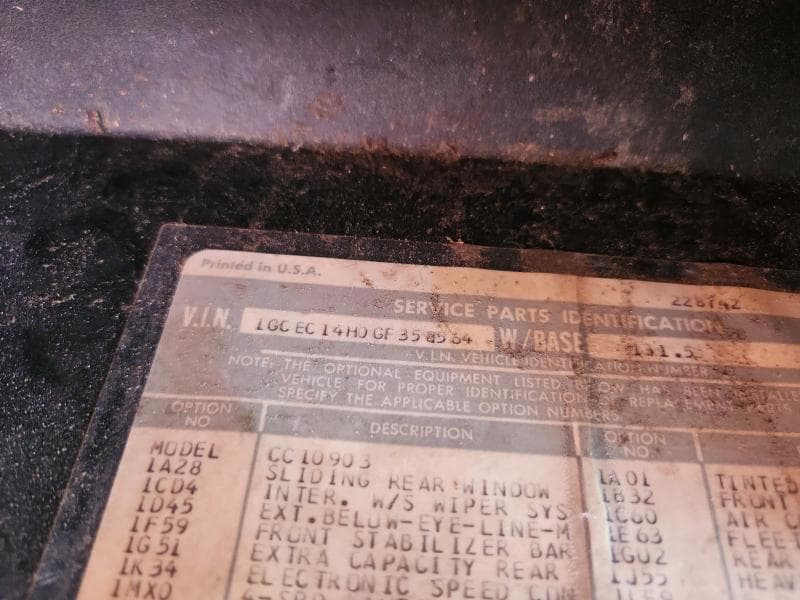 Printed in U.S.A.
SERVICE PARTS IDENTIFICATION 226742
V.I.N. 1GCEC14H0GF35 64 W/BASE 131.5
V.I.N. VEHICLE IDENTIFICATION NUMBER
NOTE: THE OPTIONAL EQUIPMENT LISTED BELOW HAS BEEN
VEHICLE FOR PROPER IDENTIFICATION OF REPLACEMENT PARTS
SPECIFY THE APPLICABLE OPTION NUMBERS.
OPTION NO DESCRIPTION OPTION NO
MODEL CC10903
1A28 SLIDING REAR WINDOW 1A01 TINTED
1CD4 INTER. W/S WIPER SYS 1B32 FRONT
1D45 EXT.BELOW-EYE-LINE-M 1C60 AIR
1F59 FRONT STABILIZER BAR 1E63 FLEET
1G51 EXTRA CAPACITY REAR 1G02 REAR
1K34 ELECTRONIC SPEED CON 1J55 HEAV
1MX0